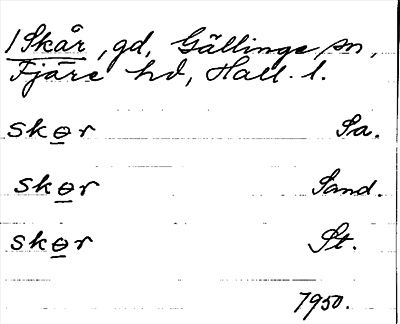 1 Skår, gd, Gällinge sn,
Fjäre hd, Hall. l.
skɵr Sa.
skɵr Sand.
skɵr St.
1950.